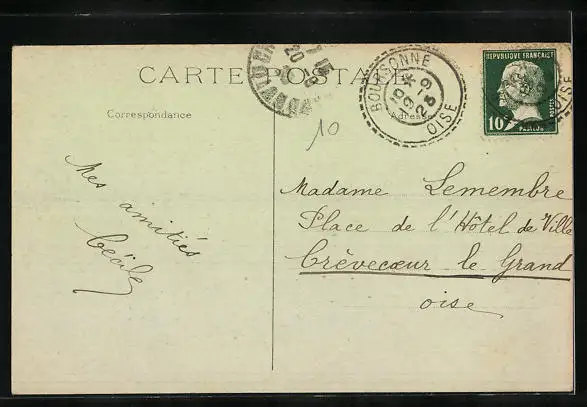 CARTE POSTALE
Correspondance
Adresse
BOURSONNE
19 - 9
23
OISE
REPVBLIQVE FRANÇAISE
POSTES
10
PASTEUR
OISE
10
Mes amitiés
Cécile
Madame Lemembre
Place de l'Hôtel de Ville
Crèvecœur le Grand
oise